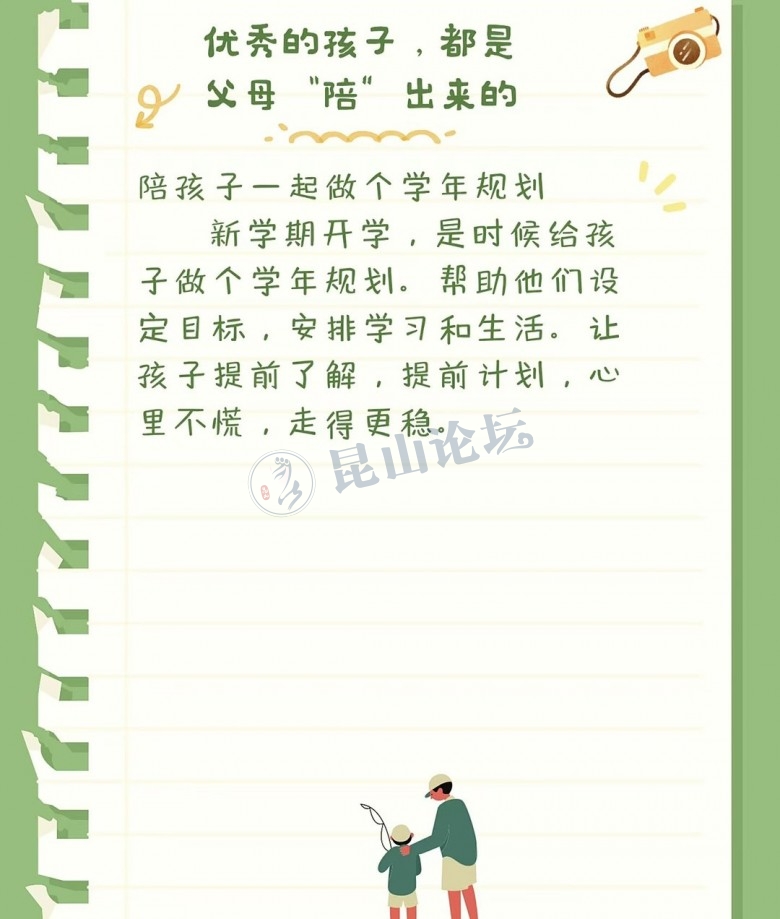 优秀的孩子，都是
父母“陪“出来的
陪孩子一起做个学年规划
新学期开学，是时候给孩
子做个学年规划。帮助他们设
定目标，安排学习和生活。让
孩子提前了解，提前计划，心
里不慌，走得更稳。
昆山论坛